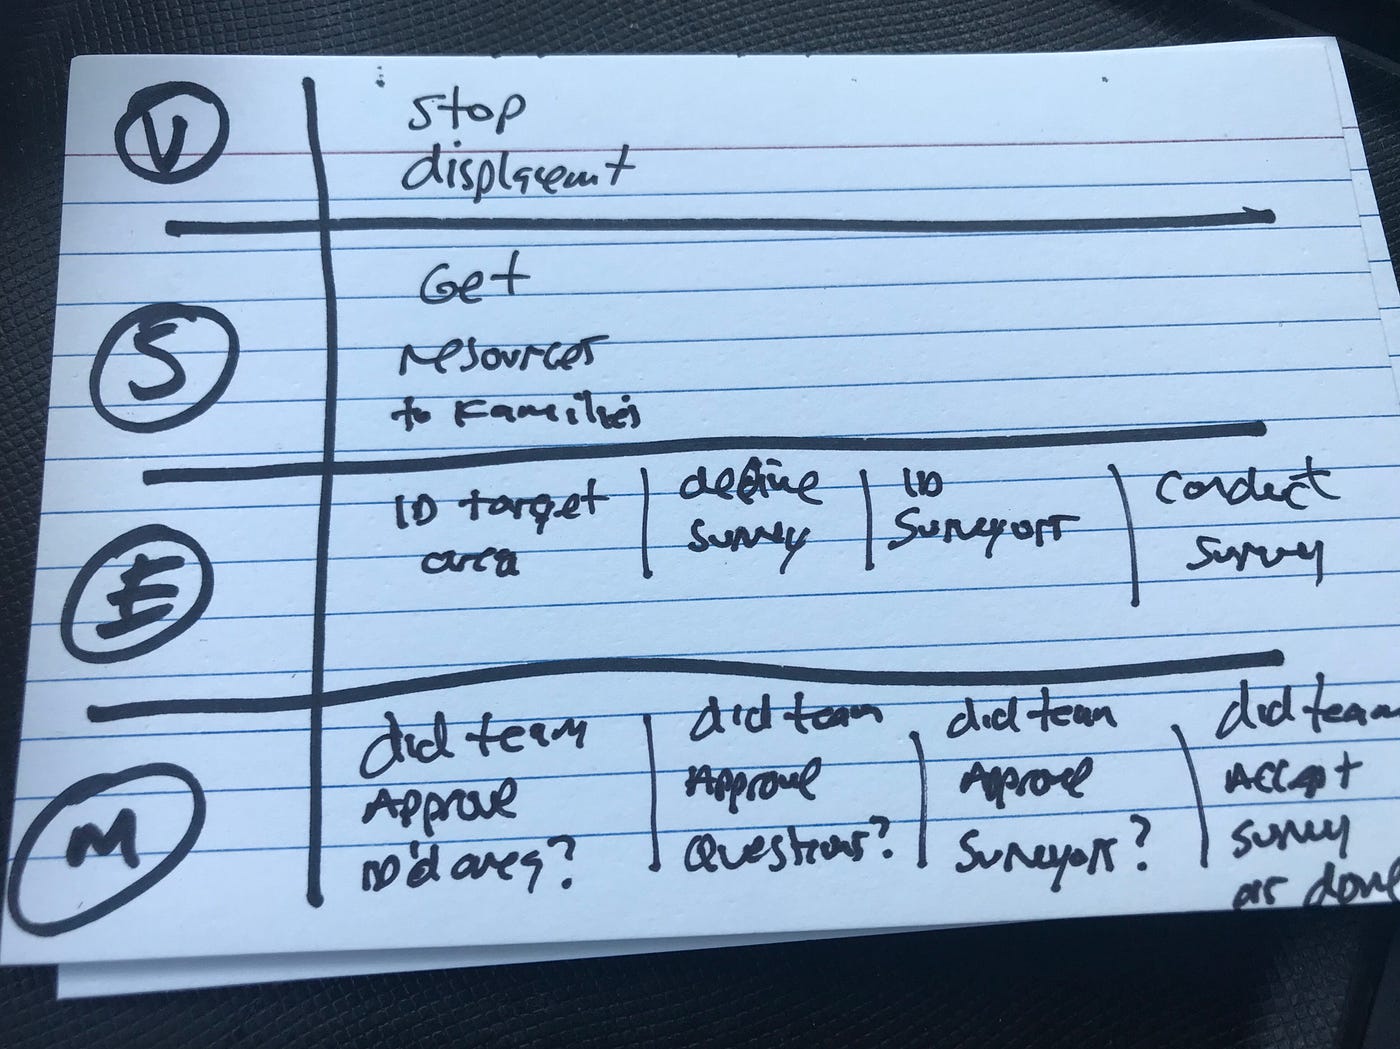 V
stop
displacemt
S
Get
resources
to Families
E
ID target
area
define
survey
ID
Surveyors
conduct
survey
M
did team
Approve
ID'd area?
did team
Approve
Questions?
did team
Approve
Surveyors?
did team
Accept
survey
as done